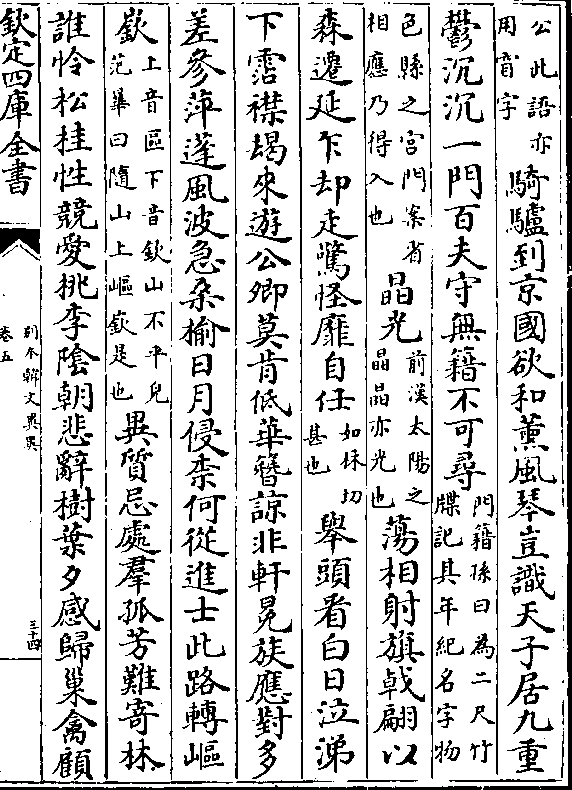 公此語亦
用音字
騎驢到京國欲和薰風琴豈識天子居九重
鬱沉沉一門百夫守無籍不可尋
門籍孫曰為二尺竹
牒記其年紀名字物
色縣之宮門案省
相應乃得入也
晶光
前漢太陽之
晶晶亦光也
蕩相射旗戟翩以
森遷延乍却走驚怪靡自任
如林切
甚也
舉頭看白日泣涕
下霑襟朅來遊公卿莫肯低華簪諒非軒冕族應對多
差參萍蓬風波急桑榆日月侵柰何從進士此路轉嶇
嶔
上音區下音欽山不平皃
范曄曰隨山上嶇嶔是也
異質忌處羣孤芳難寄林
誰怜松桂性競愛桃李陰朝悲辭樹葉夕感歸巢禽顧
欽定四庫全書
別本韓文考異
卷五
三十四